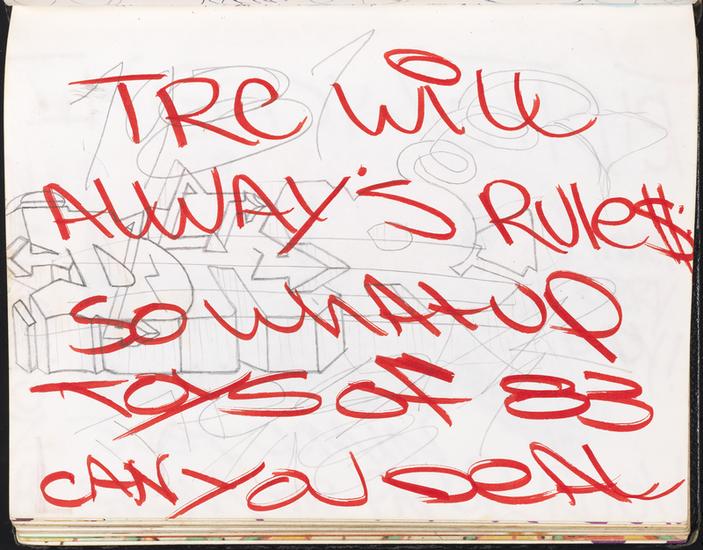 TRC WiLL
ALWAY'S RULe$
SO WHAt UP
TOYS OF 83
CAN YOU DeAL